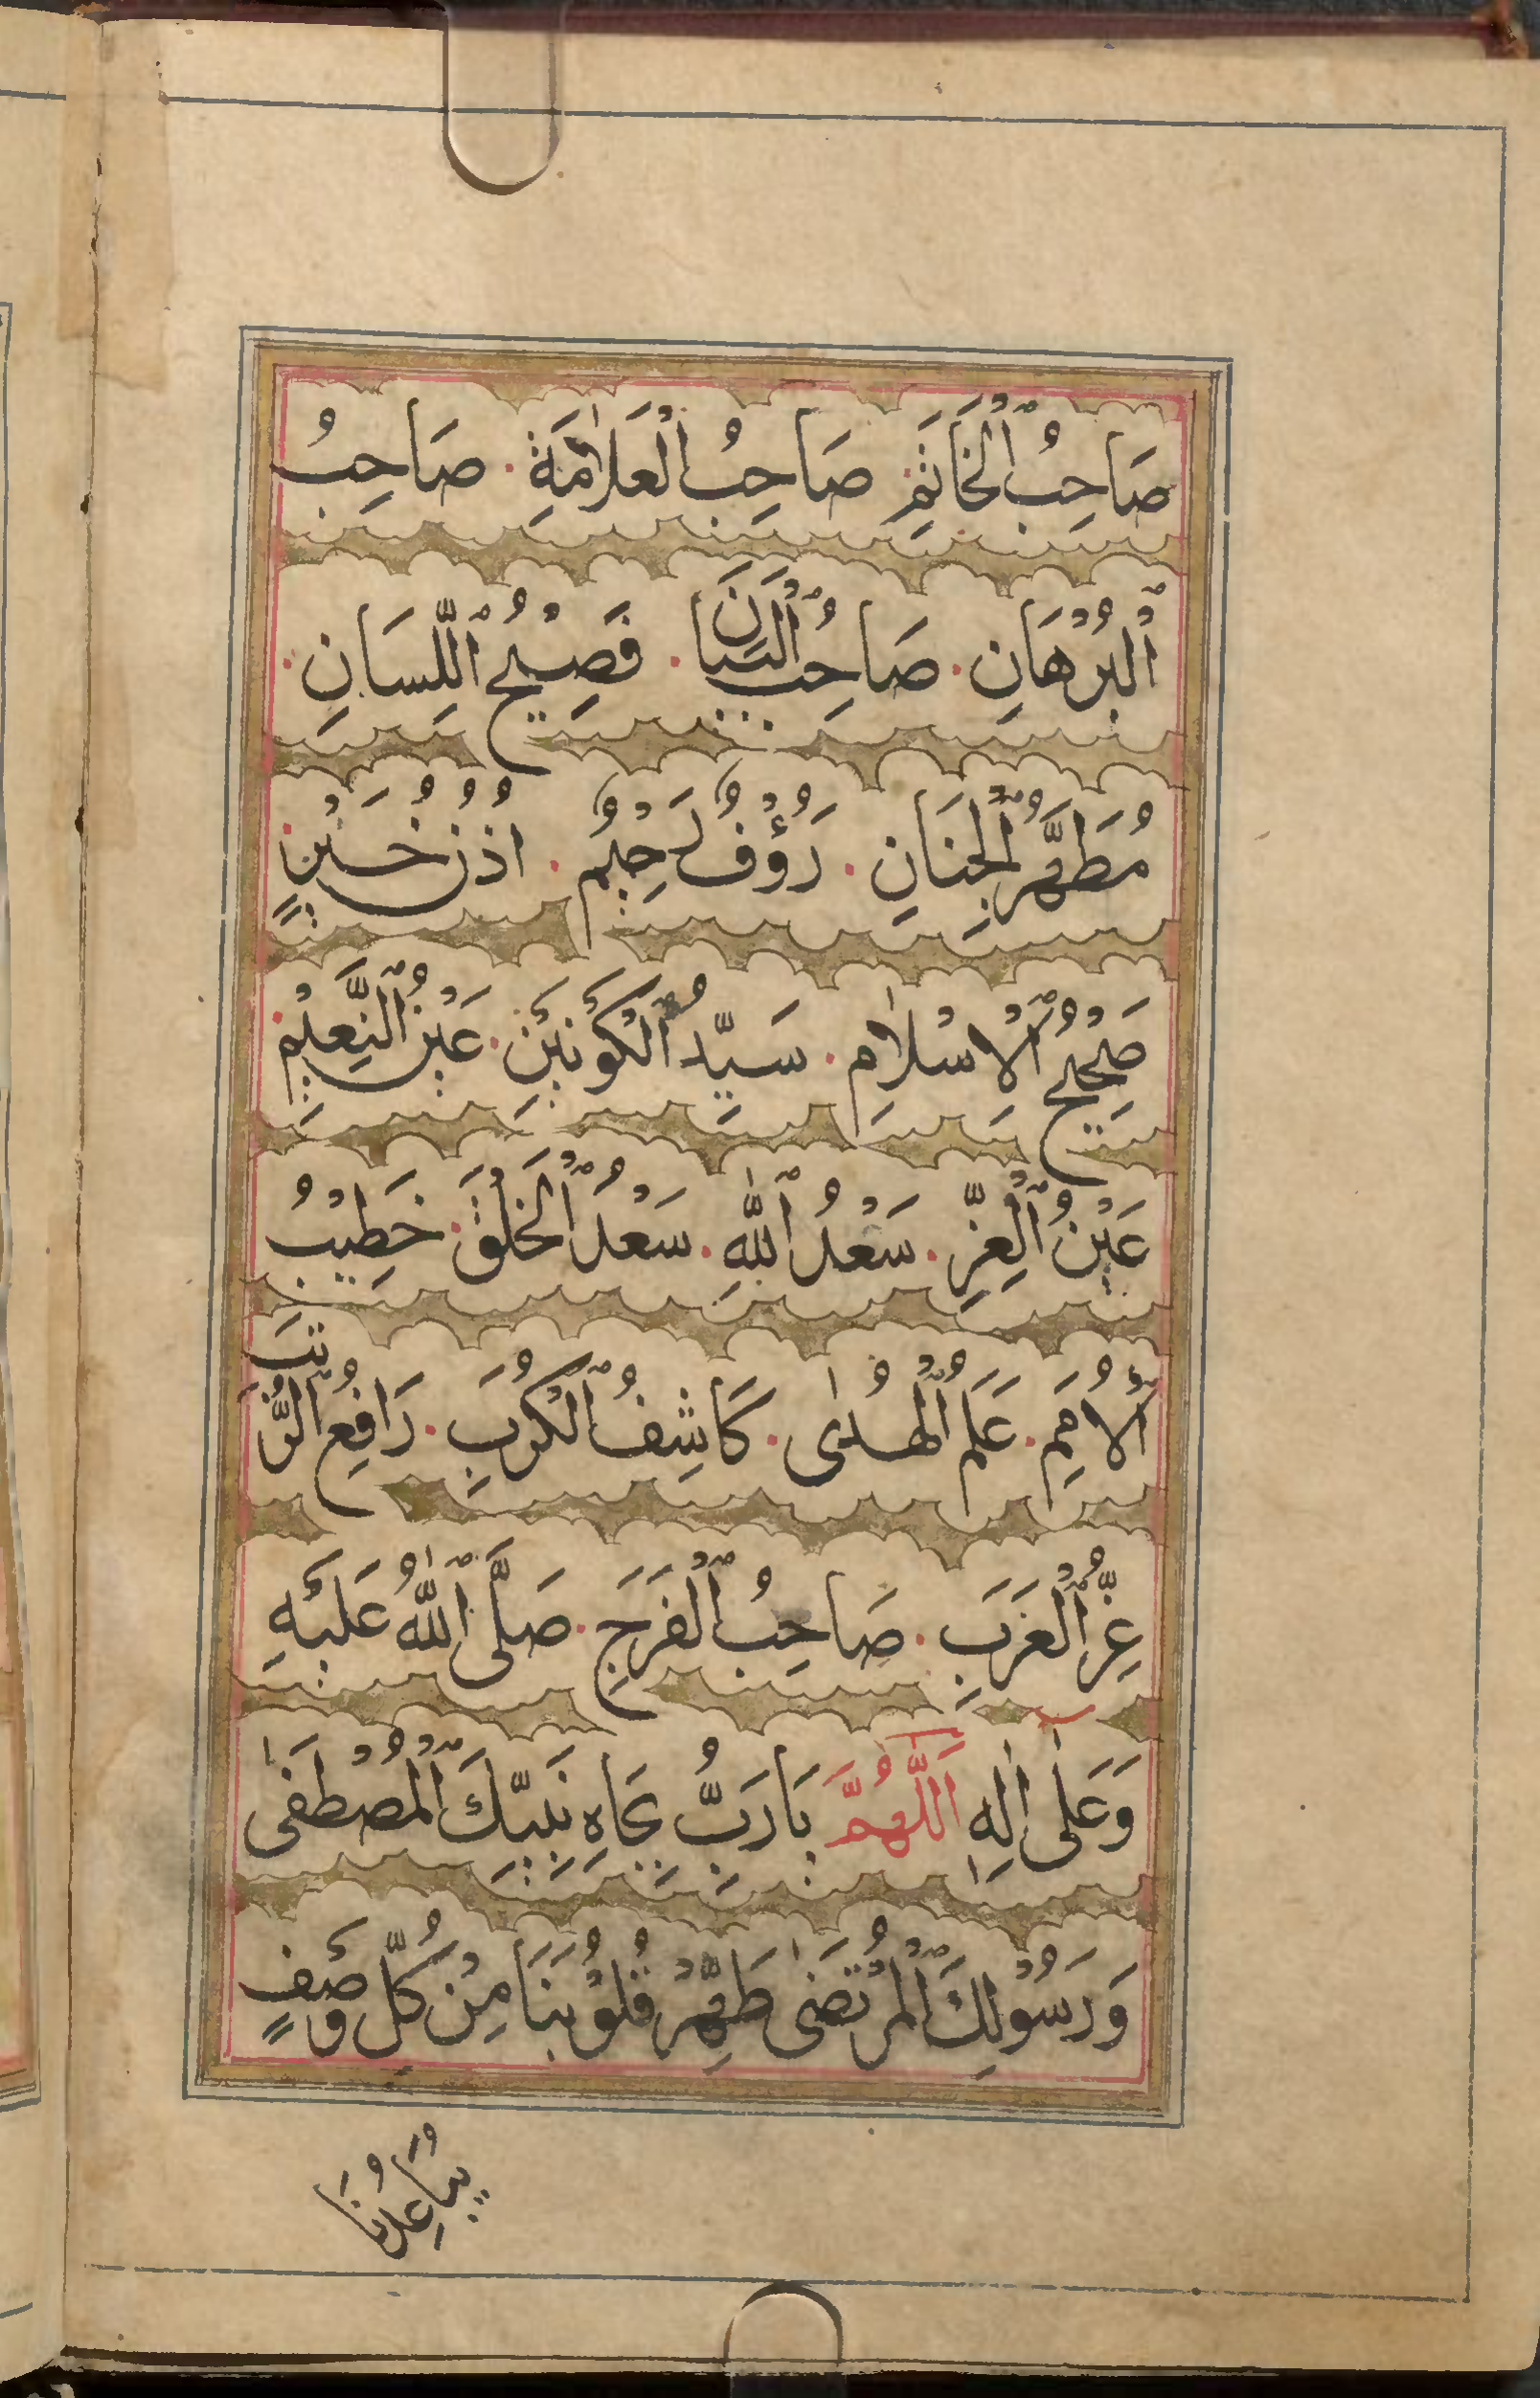 صَاحِبُ ٱلْخَاتَمِ صَاحِبُ ٱلْعَلَامَةِ ۰ صَاحِبُ
ٱلْبُرْهَانِ ۰ صَاحِبُ ٱلْبَيَانِ ۰ فَصِيْحُ ٱللِّسَانِ ۰
مُطَهَّرُ ٱلْجَنَانِ ۰ رَؤُفٌ رَحِيْمٌ ۰ اُذُنُ خَيْرٍ
صَحِيْحُ ٱلْاِسْلَامِ ۰ سَيِّدُ ٱلْكَوْنَيْنِ ۰ عَيْنُ ٱلنَّعِيْمِ ۰
عَيْنُ ٱلْغُرِّ ۰ سَعْدُ ٱللّٰهِ ۰ سَعْدُ ٱلْخَلْقِ ۰ خَطِيْبُ
ٱلْاُمَمِ ۰ عَلَمُ ٱلْهُدٰى ۰ كَاشِفُ ٱلْكُرَبِ ۰ رَافِعُ ٱلرُّتَبِ
عِزُّ ٱلْعَرَبِ ۰ صَاحِبُ ٱلْفَرَجِ ۰ صَلَّى ٱللّٰهُ عَلَيْهِ
وَعَلٰى اٰلِهٖ اَللّٰهُمَّ يَا رَبُّ بِجَاهِ نَبِيِّكَ ٱلْمُصْطَفٰى
وَرَسُوْلِكَ ٱلْمُرْتَضٰى طَهِّرْ قُلُوْبَنَا مِنْ كُلِّ وَصْفٍ
يُبَاعِدُنَا